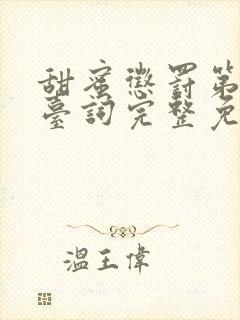 甜蜜懲罰第
臺詞完整免
溫王偉